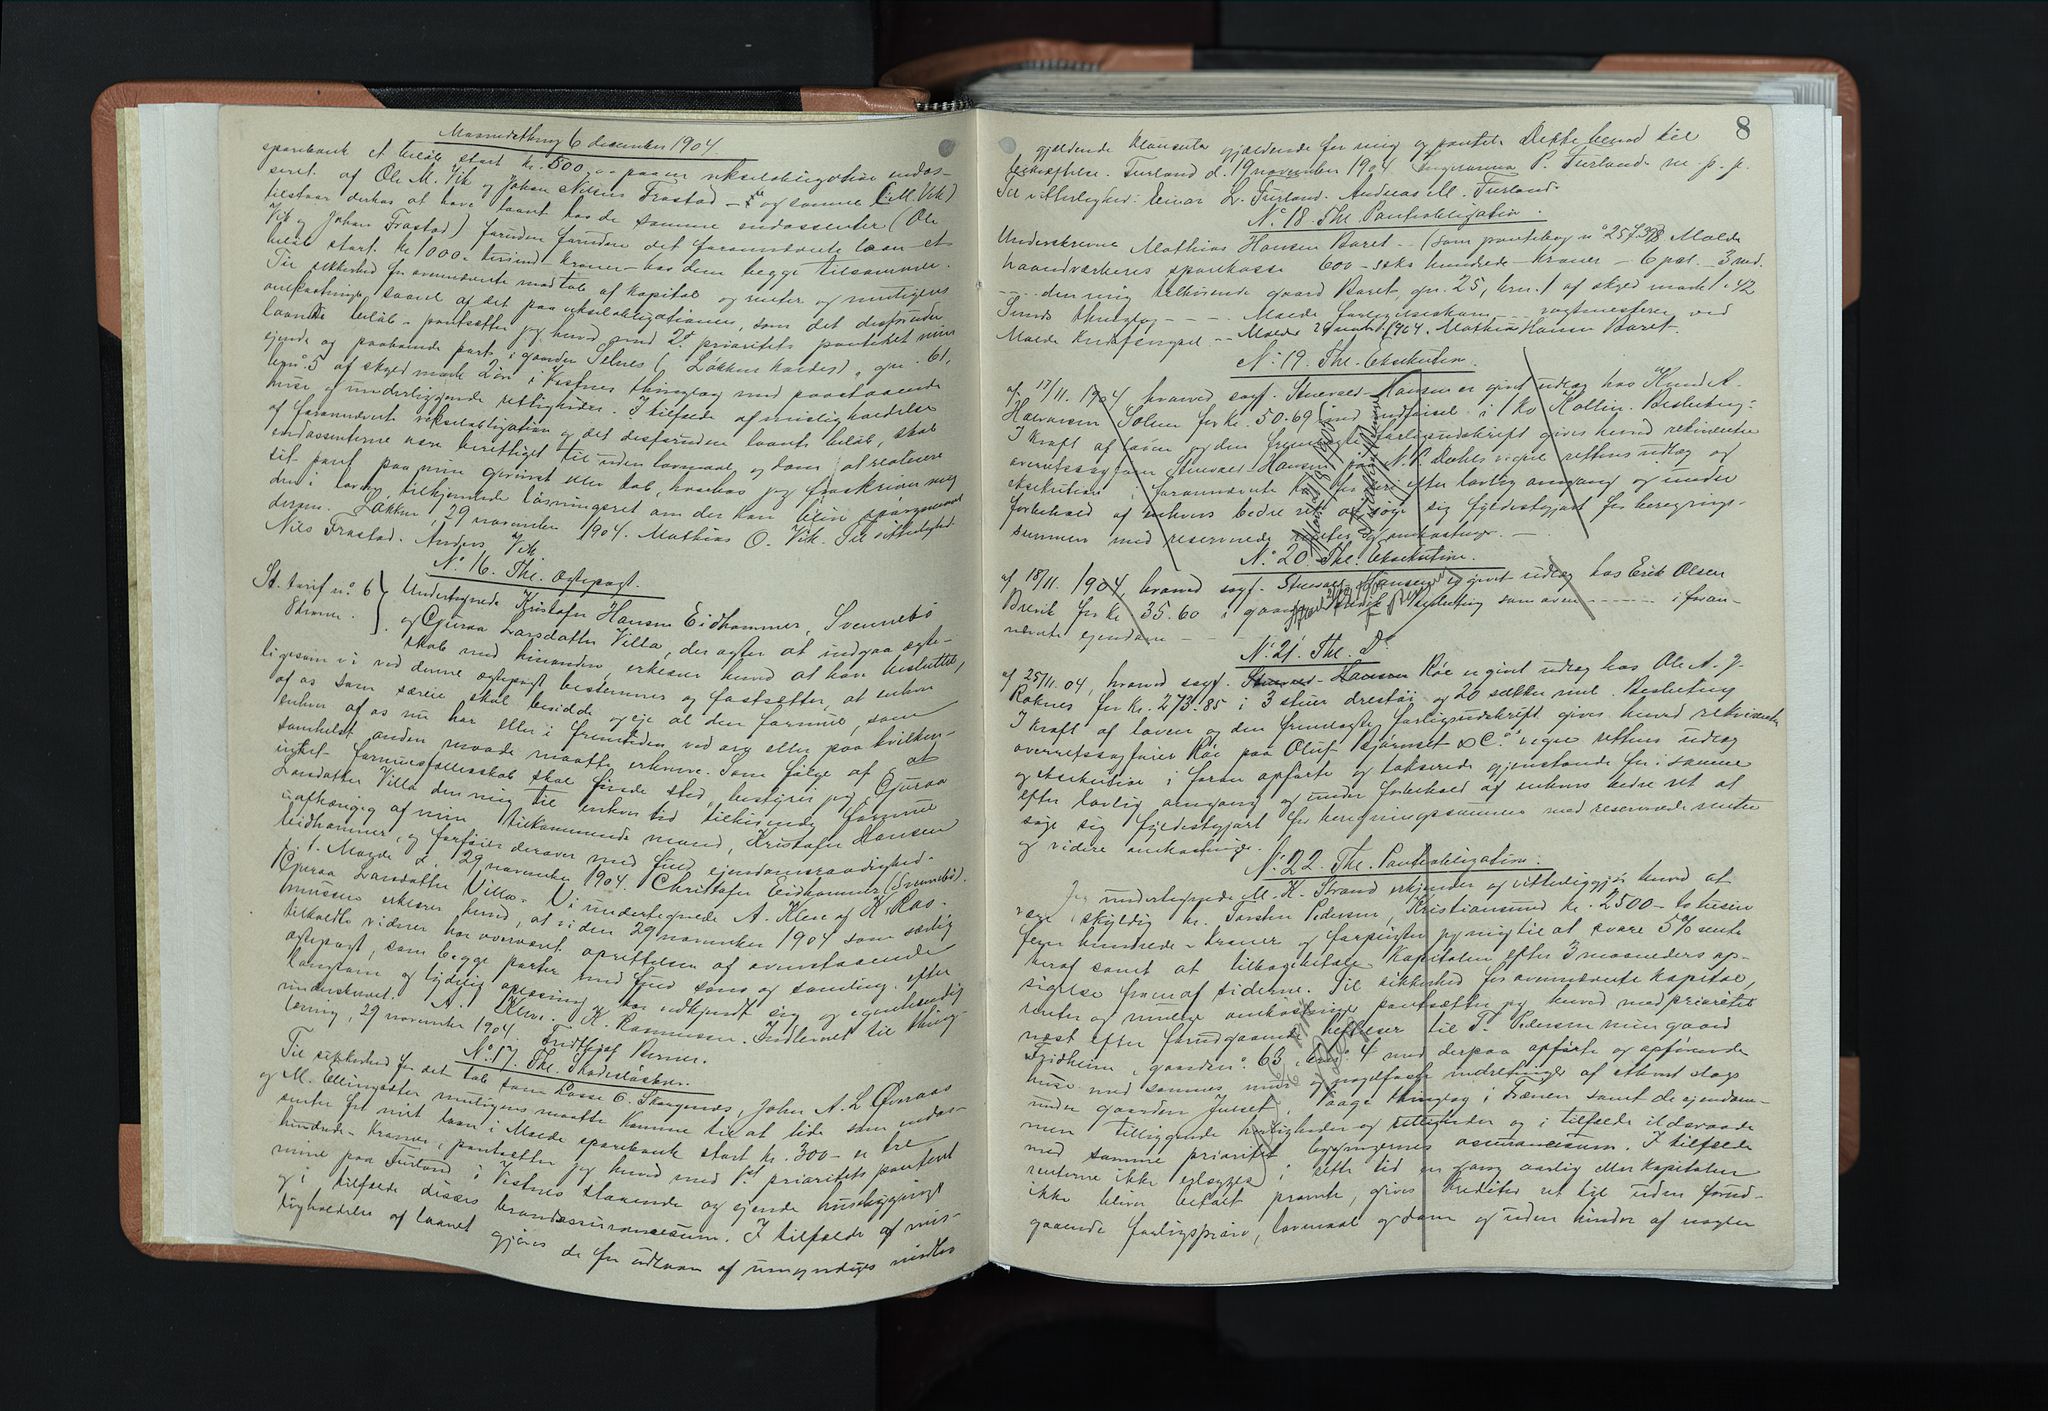 Maanedsthing 6 december 1904
sparebank et beløb stort kr. 500,00 paa en vekselobligation endos-
seret af Ole M. Vik og Johan Nilsen Frostad og samme (M. Vik)
tilstaar derhos at have laant hos de samme endossenter (Ole
Vik og Johan Frostad) foruden det forannævnte laan et
beløb stort kr. 1000 tusind kroner hos dem begge tilsammen.
Til sikkerhed for ovennævnte modtak af kapital og renter og muligens
omkostninger saavel af det paa vekselobligationen, som det desforuden
laante beløb pantsætter jeg herved med 2. prioritets panteret min
eiende og paaboende part i gaarden Selnes (Løkken kaldes), gnr. 61,
brn. 5 af skyld mark 2 i Vestnes thinglag med paastaaende
huse og underliggende rettigheder. I tilfælde af misligholdelse
af forannævnte vekselobligation og det desforuden laante beløb, skal
endossenterne være berettiget til uden lovmaal og dom at realisere
sit pant paa min gevinst eller tab, hvorhos jeg fraskriver mig
den i loven tilkjendte løsningsret om der kan blive spørgsmaal
derom. Løkken, 29 november 1904. Mathias O. Vik. Til vitterlighed:
Nils Frostad. Anders Vik.
No. 16. Thl. Ægtepagt.
St. tarif no. 6 Undertegnede Kristofer Hansen Eidhammer, Svennebø
8 kroner. og Gjuraa Larsdatter Villa, der agter at indgaa ægte-
skab med hinanden, erklærer herved at have besluttet,
ligesom vi ved denne ægtepagt bestemmer og fastsætter, at enhver
af os som særeie skal besidde og eje al den formue, som
enhver af os nu har eller i fremtiden ved arv eller paa hvilken-
somhelst anden maade maatte erhverve. Som følge af at
intet formuesfællesskab skal finde sted, bestyrer jeg, Gjuraa
Larsdatter Villa den mig til enhver tid tilhørende formue
uafhængig af min tilkommende mand, Kristofer Hansen
Eidhammer, og forføier derover med fuld ejendomsraadighed.
Molde d. 29 november 1904. Christofer Eidhammer (Svennebø).
Gjuraa Larsdatter Villa. Vi undertegnede A. Kleve og K. Ras-
mussen erklærer herved, at vi den 29 november 1904 som særlig
tilkaldte vidner har overværet oprettelsen af ovenstaaende
ægtepagt, som begge parter med fuld sans og samling efter
langsom og tydelig oplæsning har vedkjendt sig og egenhændig
underskrevet. A. Kleve. K. Rasmussen. Indleveret til thing-
læsning, 29 november 1904. Fridthjof Berner.
No. 17. Thl. Skadesløsbrev.
Til sikkerhed for det tab som Lasse C. Skorgenes, John A. L. Øveraas
og M. Ellingsæter muligens maatte komme til at lide som endos-
senter for mit laan i Molde sparebank stort kr. 300 er tre
hundrede kroner, pantsætter jeg herved med 1ste prioritets panteret
mine paa Furland i Vestnes staaende og eiende husbygninger
og i tilfælde disses brandassurancesum. I tilfælde af mis-
ligholdelse af laanet gjøres de for udlaan af umyndiges midler
8
gjældende klausuler gjældende for mig og pantet. Dette herved til
bekræftelse. Furland d. 19 november 1904. P. Furland m. p. p.
Til vitterlighed: Einar L. Furland. Andreas M. Furland.
No. 18. Thl. Panteobligation.
Underskrevne Mathias Hansen Baret (som pantebog no. 25 Molde
haandværkeres sparekasse 600 seks hundrede kroner 6 pct. 3 md.
den mig tilhørende gaard Baret, gn. 25, brn. 1 af skyld mark 1.42
Sunds thinglag Molde forligelseskom. vagtmesteren ved
Molde Kredsfængsel Molde 1904. Mathias Hansen Baret.
No. 19. Thl. Eksekution.
af 17/11. 1904, hvorved sagf. Stuevold-Hansen er givet udlæg hos Knud A.
Halvorsen Solem for kr. 50.69 i 1 ko Kollin. Beslutning:
I kraft af loven og den fremlagte forligsudskrift gives herved rekvirenten
overretssagfører Stuevold-Hansen paa N. P. Dahls vegne rettens udlæg og
eksekution i forannævnte ko efter lovlig omgang og under
forbehold af enhvers bedre ret at søge sig fyldestgjort for beregnings-
summen med reserverede renter og omkostninger.
No. 20. Thl. Eksekution.
af 18/11. 1904, hvorved sagf. Stuevold-Hansen er givet udlæg hos Erik Olsen
Brevik for kr. 35.60 i gaarden Brevik Beslutning som oven i foran-
nævnte ejendom
No. 21. Thl. Do
af 25/11. 04, hvorved sagf. Stuevold-Hansen Røe er givet udlæg hos Ole A. J.
Roknes for kr. 273.85 i 3 stuer drestøi og 20 sækker mel. Beslutning
I kraft af loven og den fremlagte forligsudskrift gives herved rekvirenten
overretssagfører Røe paa Oluf Bjørnset & Co.s vegne rettens udlæg
og eksekution i foran opførte og takserede gjenstande for i samme
efter lovlig omgang og under forbehold af enhvers bedre ret at
søge sig fyldestgjort for beregningssummen med reserverede renter
og videre omkostninger.
No. 22. Thl. Panteobligation.
Jeg undertegnede M. K. Strand erkjender og vitterliggjør herved at
være skyldig hr. Torsten Pedersen, Kristiansund kr. 2500 to tusen
fem hundrede kroner og forpligter jeg mig til at svare 5% rente
heraf samt at tilbagebetale kapitalen efter 3 maaneders op-
sigelse fra en af siderne. Til sikkerhed for ovennævnte kapital,
renter og mulige omkostninger pantsætter jeg herved med prioritet
næst efter forudgaaende heftelser til T. Pedersen min gaard
Fridheim, gaardsno. 63, brno. 4 med derpaa opførte og opførende
huse med sammes mur og nagelfaste indretninger af ethvert slags
under gaarden Julset, Vaage thinglag i Frænen samt de ejendom-
men tilliggende herligheder og rettigheder og i tilfælde ildsvaade
med samme prioritet bygningernes assurancesum. I tilfælde
renterne ikke erlægges i rette tid en gang aarlig eller kapitalen
ikke bliver betalt promte, gives kreditor ret til uden forud-
gaaende forligsprøve, lovmaal og dom og uden hinder af nogen